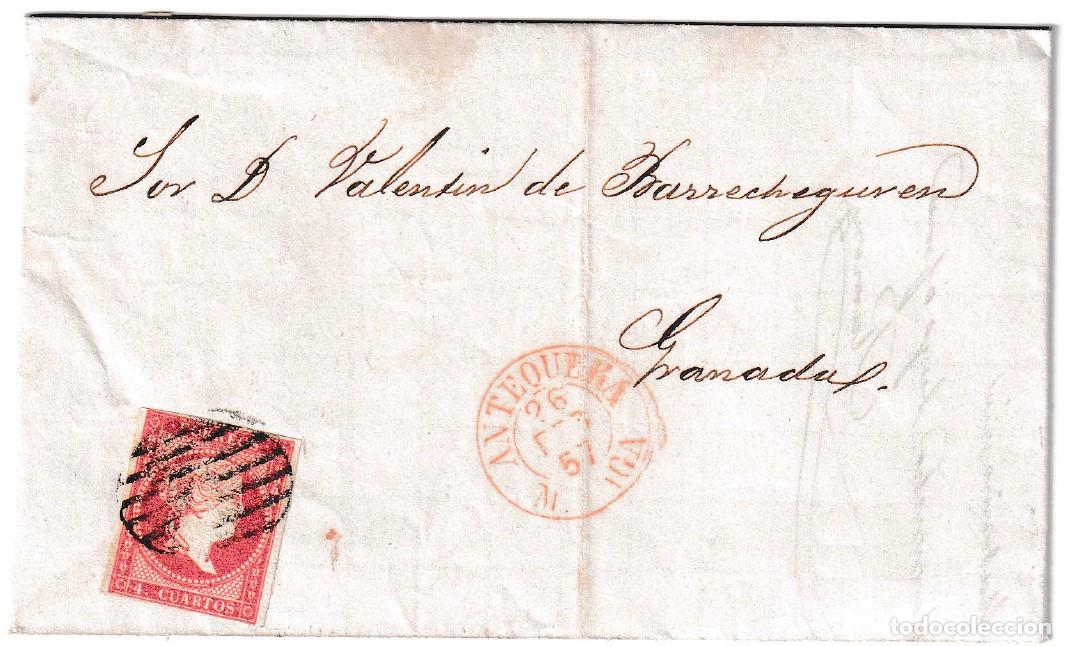 Sor D Valentin de Barrecheguren
Granada.
ANTEQUERA
26
57
4 CUARTOS
todocoleccion